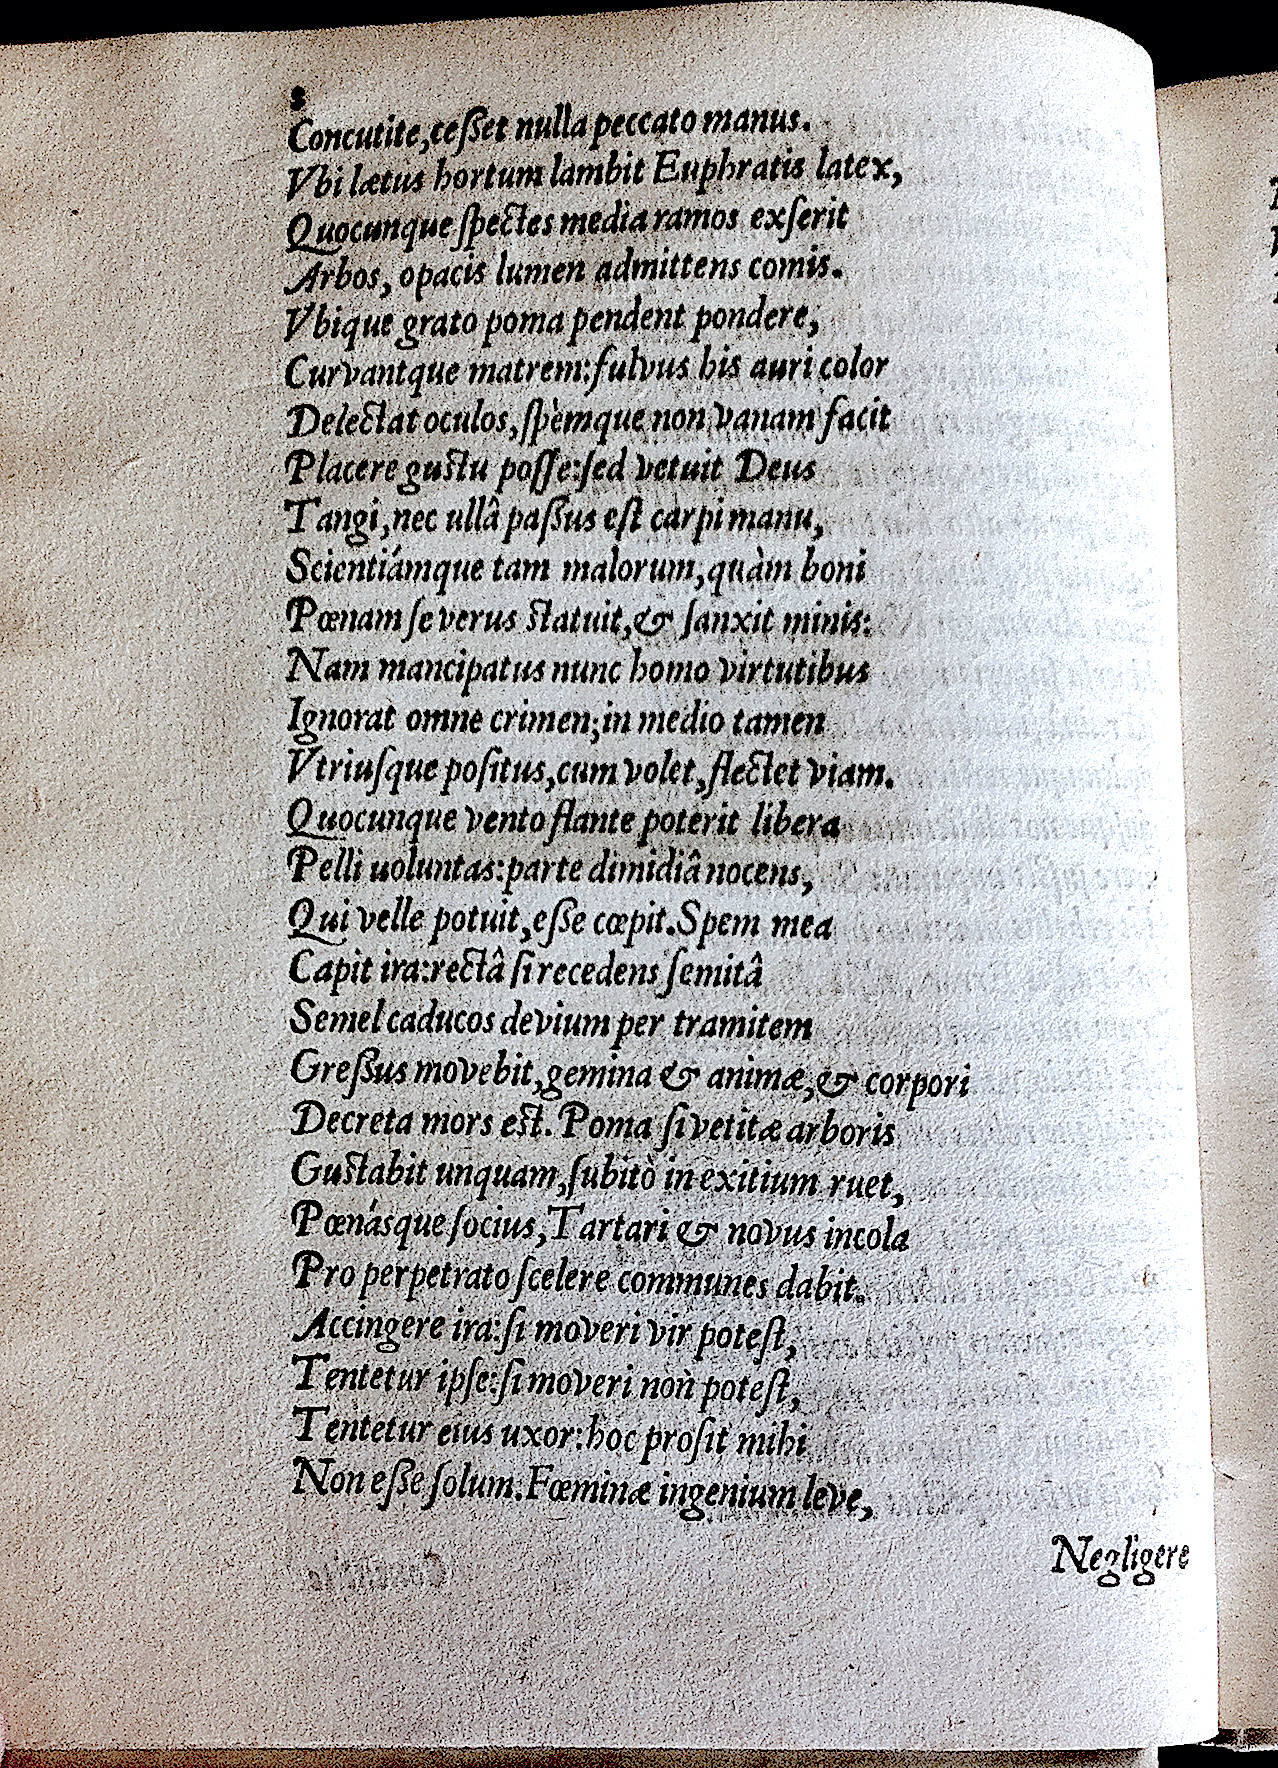 8
Concutite, ceſſet nulla peccato manus.
Vbi lætus hortum lambit Euphratis latex,
Quocunque ſpectes media ramos exſerit
Arbos, opacis lumen admittens comis.
Vbique grato poma pendent pondere,
Curvantque matrem: fulvus his auri color
Delectat oculos, ſpèmque non vanam facit
Placere guſtu poſſe: ſed vetuit Deus
Tangi, nec ullâ paſſus eſt carpi manu,
Scientiámque tam malorum, quàm boni
Pœnam ſeverus ſtatuit, & ſanxit minis:
Nam mancipatus nunc homo virtutibus
Ignorat omne crimen; in medio tamen
Vtriuſque poſitus, cum volet, flectet viam.
Quocunque vento flante poterit libera
Pelli uoluntas: parte dimidiâ nocens,
Qui velle potuit, eſſe cœpit. Spem mea
Capit ira: rectâ ſi recedens ſemitâ
Semel caducos devium per tramitem
Greſſus movebit, gemina & animæ, & corpori
Decreta mors eſt. Poma ſi vetitæ arboris
Guſtabit unquam, ſubitò in exitium ruet,
Pœnáſque ſocius, Tartari & novus incola
Pro perpetrato ſcelere communes dabit.
Accingere ira: ſi moveri vir poteſt,
Tentetur ipſe: ſi moveri non poteſt,
Tentetur eius uxor: hoc proſit mihi
Non eſſe ſolum. Fœminæ ingenium leve,
Negligere